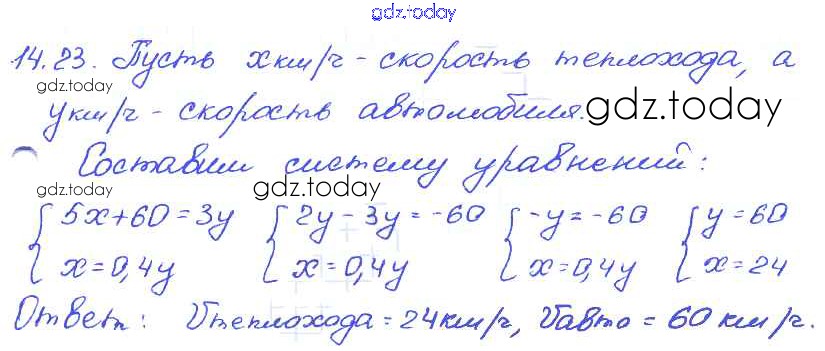 gdz.today
14.23. Пусть x км/ч - скорость теплохода, а
gdz.today
y км/ч - скорость автомобиля.
gdz.today
Составим систему уравнений:
gdz.today gdz.today
{5x+60=3y {2y-3y=-60 {-y=-60 {y=60
{x=0,4y {x=0,4y {x=0,4y {x=24
Ответ: Vтеплохода = 24 км/ч, Vавто = 60 км/ч.